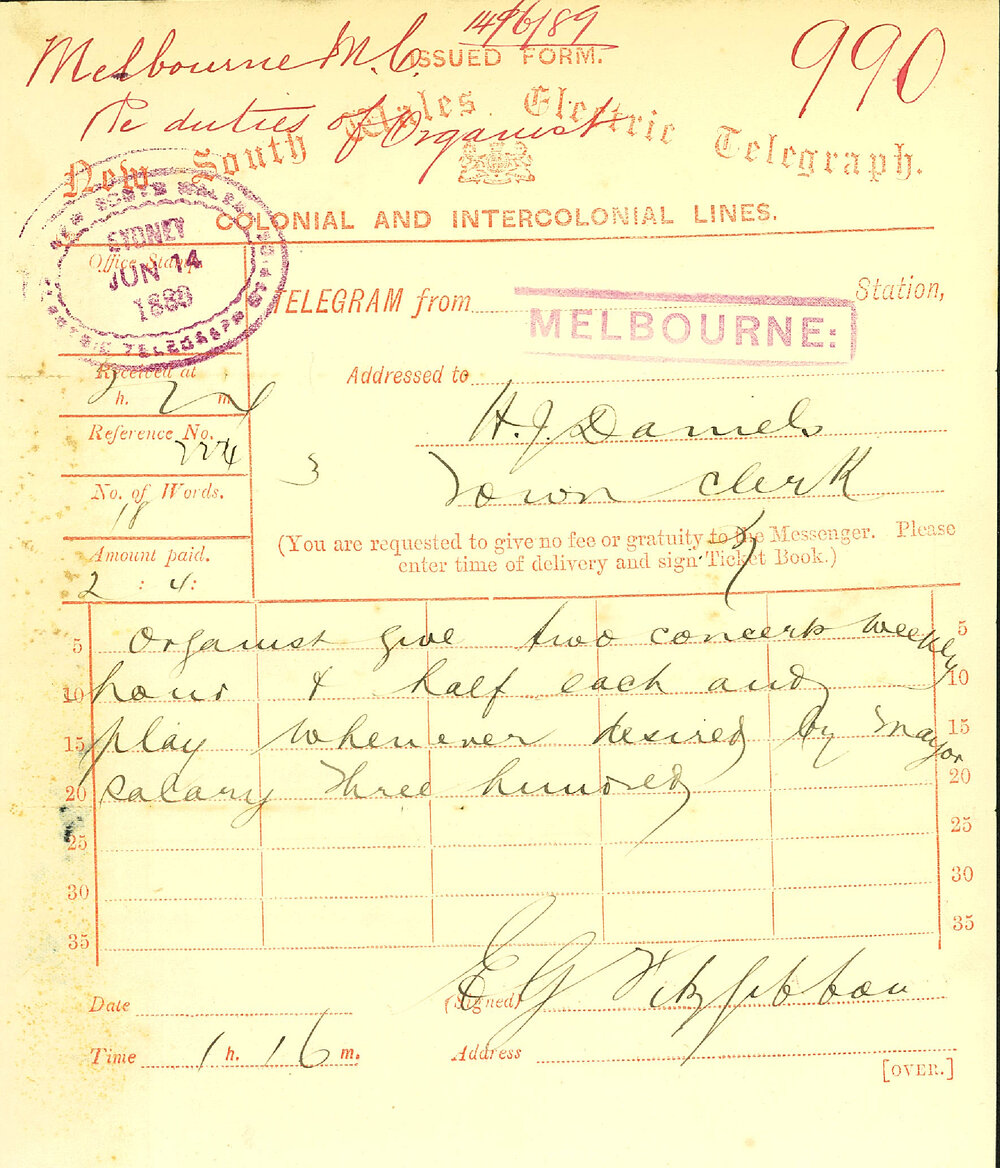 14/6/89
Melbourne M.C.
ISSUED FORM.
990
Re duties of Organist
New South Wales Electric Telegraph.
COLONIAL AND INTERCOLONIAL LINES.
NEW SOUTH WALES
SYDNEY
JUN 14
1889
ELECTRIC TELEGRAPH
Office Stamp
TELEGRAM from Station,
MELBOURNE:
Received at
h. m
Addressed to
H. J. Daniels
Reference No.
224
3
Town Clerk
No. of Words.
18
(You are requested to give no fee or gratuity to the Messenger. Please
enter time of delivery and sign Ticket Book.)
Amount paid.
2 : 4 :
5 Organist give two concerts weekly 5
10 hour & half each and 10
15 play whenever desired by mayor 15
20 salary three hundred 20
25 25
30 30
35 35
Date
(Signed) E G Fitzgibbon
Time 1 h. 16 m.
Address
[OVER.]